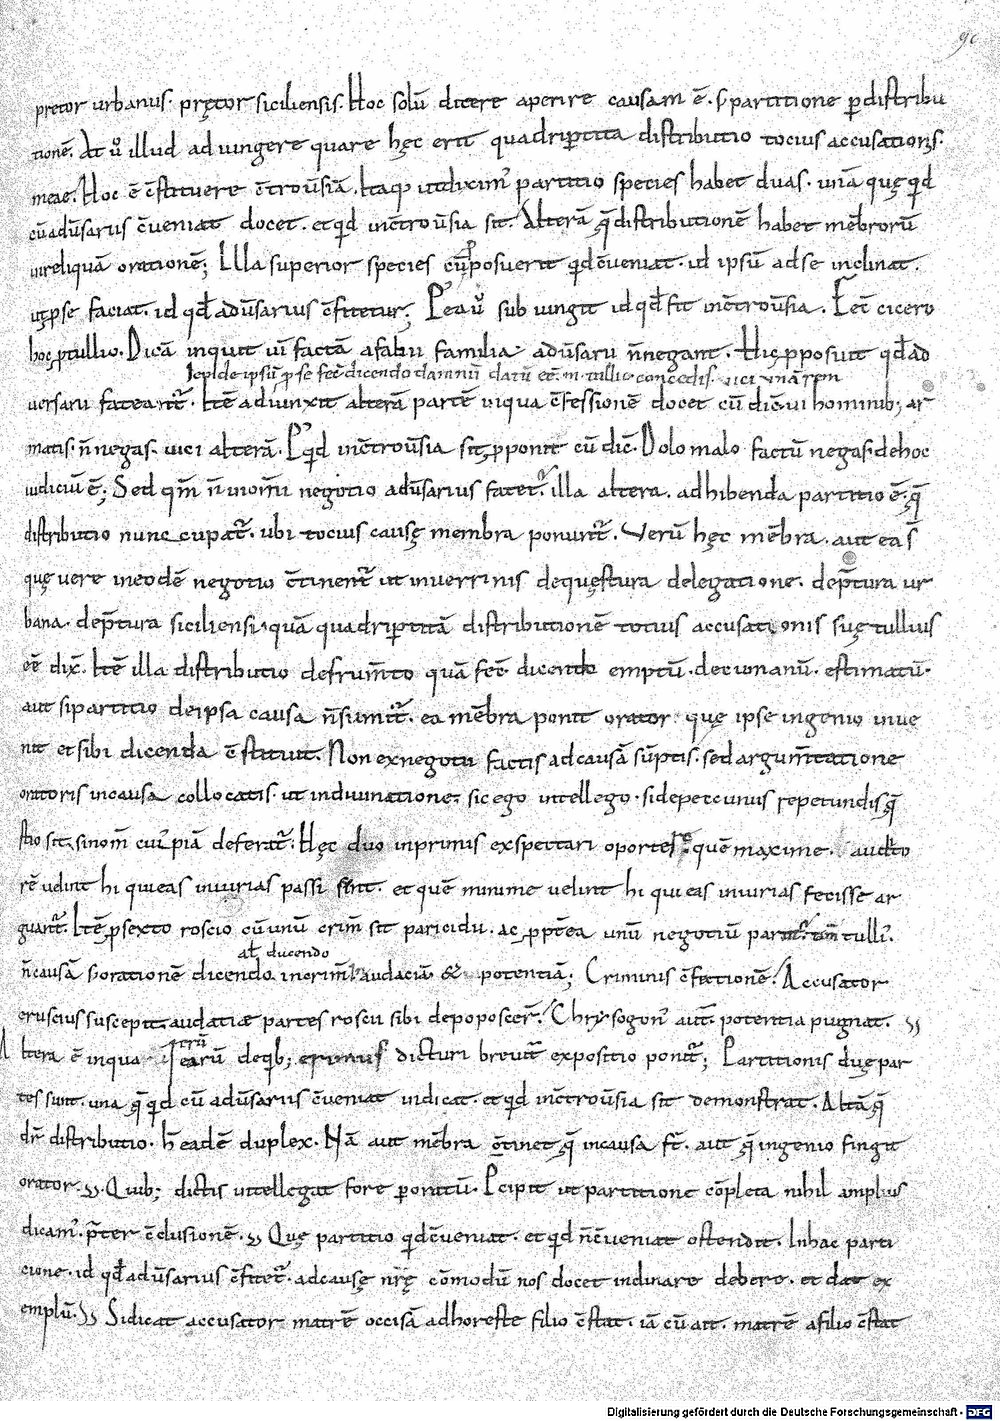 90
pretor urbanus. prętor siciliensis. Hoc solū dicere aperire causam ē. s; partitione p distribu
tionē. At ů illud adiungere quare hęc erit quadripertita distributio tocius accusationis
meae. Hoc ē c̄stituere c̄trouersiā. Itaq; ut diximꝰ partitio species habet duas. unā quę qd
cū adūsarius c̄ueniat docet. et qd in c̄troūsia sit. Alterā q̄ distributionē habet mēbrorū
in reliquā orationē; Illa superior species cū posuerit qd c̄ueniat. id ipsū ad se inclinat.
ut p se faciat. id qd̄ adūsarius c̄fitetur; subiungit id qd̄ fit in c̄troūsia. cicero
hoc p tullio. Dicā inquit ui factā a familia adūsarii n̄ negant. Hic pposuit qd̄ ad
id ipsū p se fec̄ dicendo damnū datū eē. m. tullio concedis. uici unā rem
uersarii fateant̄. Itē adiunxit alterā partē in qua c̄fessionē docet cū dic̄ ui hominib; ar
matis. n̄ negas. uici alterā. qd in c̄troūsia sit, pponit cū dic̄. Dolo malo factū negas. de hoc
iudiciū ē; Sed qm̄ n̄ in om̄i negotio adūsarius fatet̄. illa altera. adhibenda partitio ē. q̄
distributio nuncupat̄. ubi tocius causę membra ponunt̄. Verū hęc mēbra. aut ea s̄
quę uere in eodē negotio c̄tinent̄ ut in uerrinis de quęstura delegatione. de p̄tura ur
bana. de p̄tura siciliensi. quā quadripertitā distributionē totius accusationis suę tullius
eē dix̄. Itē illa distributio de frum̄to quā fec̄ dicendo emptū. decumanū. estimatū.
aut si partitio de ipsa causa n̄ sumit̄. ea mēbra ponit orator quę ipse ingenio inue
nit et sibi dicenda c̄stituit. Non ex negotii factis ad causā sūptis. sed argum̄tatione
oratoris in causa collocatis. ut in diuinatione. sic ego intellego. si de pecuniis repetundis q̄
stio sit. deferat̄. Hęc duo in primis exspectari oportere. quē maxime
uelint hi qui eas iniurias passi sint. et quē minime uelint hi qui eas iniurias fecisse ar
guant̄. Itē p sexto roscio cū unū crim̄ sit paricidii. ac p p̄tea unū negotiū tullꝰ.
al̄ ducendo
n̄ causā s; orationē dicendo in crim̄ audaciā & potentiā; Criminis c̄fictionē. Accusator
eruscius suscepit. audatiae partes roscii sibi depoposcer̄. Chrysogonꝰ aut̄. potentia pugnat.
Altera ē in qua rerū de qib; erimus dicturi breuit̄ expositio ponit̄; Partitionis duę par
tes sunt. una q̄ qd cū adūsariis c̄ueniat indicat. et qd in c̄troūsia sit demonstrat. Altā q̄
dr̄ distributio. h̄ eadē duplex. Nā aut mēbra c̄tinet q̄ in causa st̄. aut q̄ ingenio fingit
orator. Quib; dictis intellegat fore poratū. P̄cipit ut partitione cōpleta nihil amplius
dicamꝰ. p̄ter c̄clusionē. Quę partitio qd c̄ueniat. et qd n̄ c̄ueniat ostendit. In hac parti
cione. id qd̄ adūsarius c̄fitet̄. ad causę nr̄ę cōmodū nos docet inclinare debere. et dat ex
emplū. Si dicat accusator matrē occisā ad horeste filio c̄stat. iā cū ait. matrē a filio c̄stat
Digitalisierung gefördert durch die Deutsche Forschungsgemeinschaft - DFG